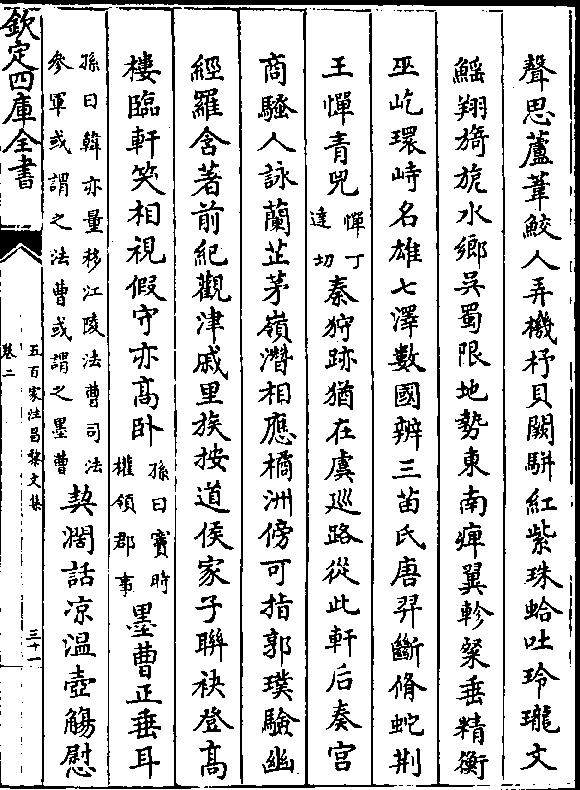 聲思蘆葦鮫人弄機杼貝闕駢紅紫珠蛤吐玲瓏文
鰩翔旖旎水鄉吳蜀限地勢東南痺翼軫粲垂精衡
巫屹環峙名雄七澤數國辨三苗氏唐羿斷脩蛇荆
王憚青兕憚丁達切秦狩跡猶在虞巡路從此軒后奏宮
商騷人詠蘭芷茅嶺潛相應橘洲傍可指郭璞驗幽
經羅含著前紀觀津戚里族按道侯家子聯袂登高
樓臨軒笑相視假守亦高卧孫曰竇時權領郡事墨曹正垂耳
孫曰韓亦量移江陵法曹司法參軍或謂之法曹或謂之墨曹契濶話凉溫壺觴慰
欽定四庫全書
五百家注昌黎文集
卷二
三十一